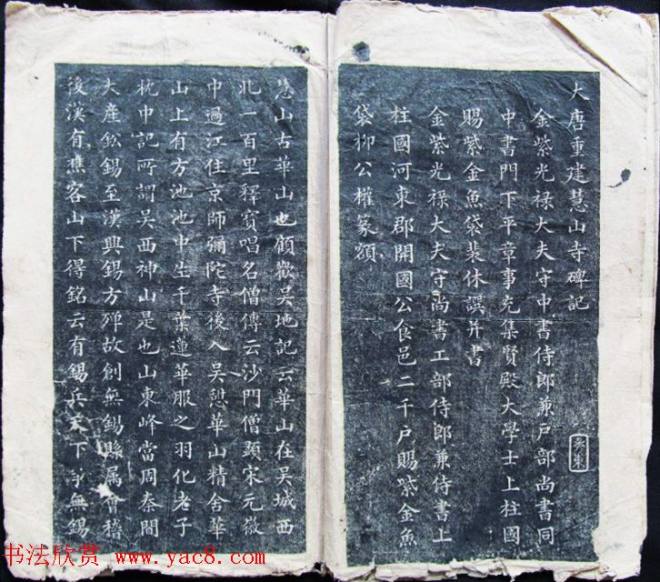 大唐重建慧山寺碑記
金紫光禄大夫守中書侍郎兼戶部尚書同
中書門下平章事充集賢殿大學士上柱國
賜紫金魚袋裴休譔并書
金紫光禄大夫守尚書工部侍郎兼侍書上
柱國河東郡開國公食邑二千戶賜紫金魚
袋柳公權篆額
慧山古華山也顧歡吳地記云華山在吳城西
北一百里釋寶唱名僧傳云沙門僧顯宋元徽
中過江住京師彌陀寺後入吳憩華山精舍華
山上有方池池中生千葉蓮華服之羽化老子
枕中記所謂吳西神山是也山東峰當周秦間
大產鉛錫至漢興錫方殫故創無錫縣属會稽
後漢有樵客山下得銘云有錫兵天下爭無錫
书法欣赏 www.yac8.com